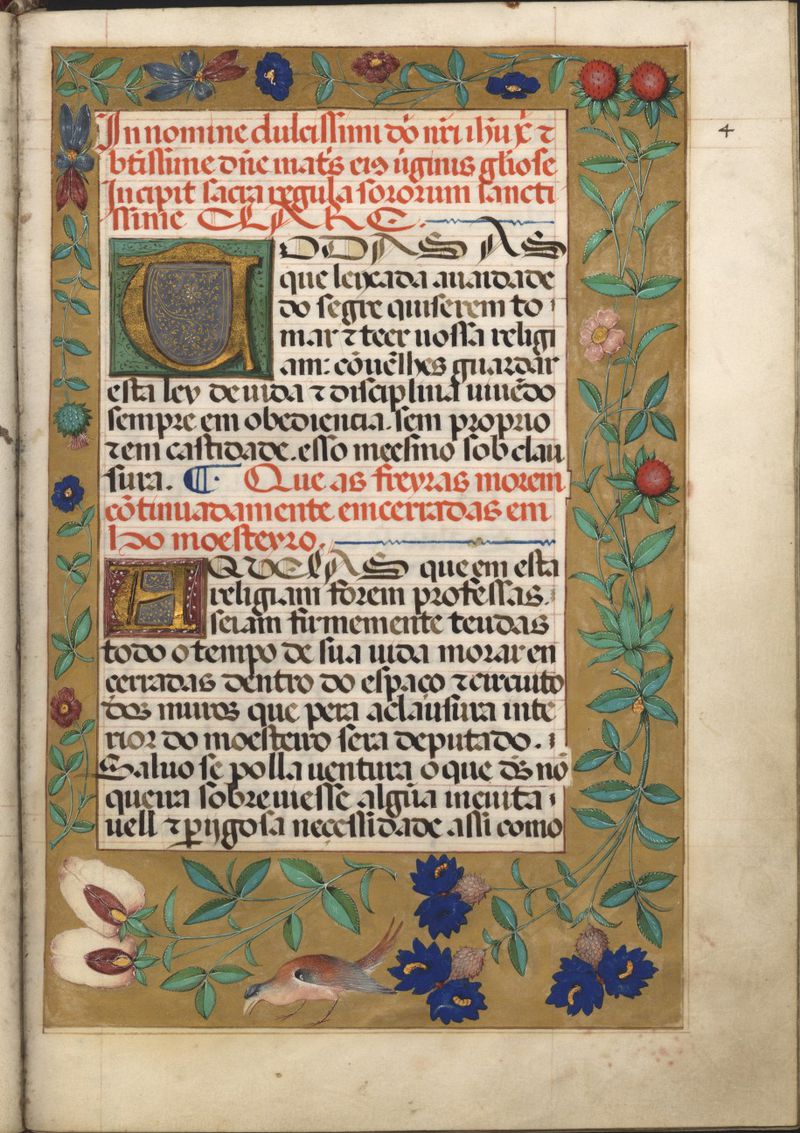 4
In nomine dulcissimi dñi nr̃i ihũ x̃ ⁊
btissime dñe mat̃s ei9 ũginis gliose
Incipit sacra regula sororum sancti
ssime CLARE.
TODAS AS
que leixada auaidade
do segre quiserem to
mar ⁊ teer uossa religi
am: cõuẽlhes guardar
esta ley de uida ⁊ disciplina uiuẽdo
sempre em obediencia. sem proprio
⁊ em castidade. esso meesmo sob clau
sura. ¶ Que as freyras morem
cõtinuadamente emcerradas em
ho moesteyro.
AQVELAS que em esta
religiam forem professas.
seiam firmemente teudas
todo o tempo de sua uida morar en
cerradas dentro do espaço ⁊ circuito
dos muros que pera a clausura inte
rior do moesteiro sera deputado.
Saluo se polla uentura o que d̃s nõ
queira sobreuiesse algũa ineuita
uell ⁊ p̱ijgosa necessidade assi como